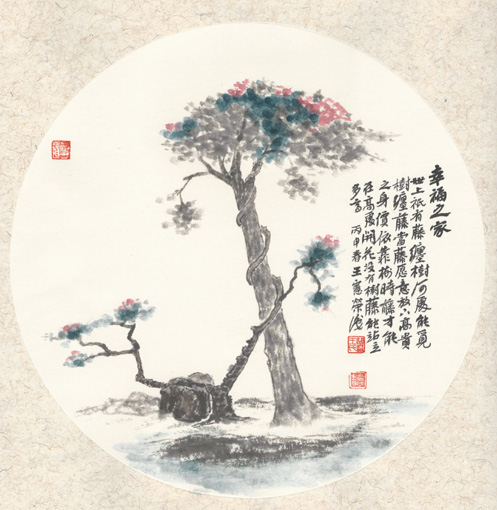 幸福之家
世上祇有藤纏樹何處能覓
樹纏藤當藤愿意放下高貴
之身價依靠樹時藤才能
在高處開花沒有樹藤能站立
多高 丙申春王憲榮